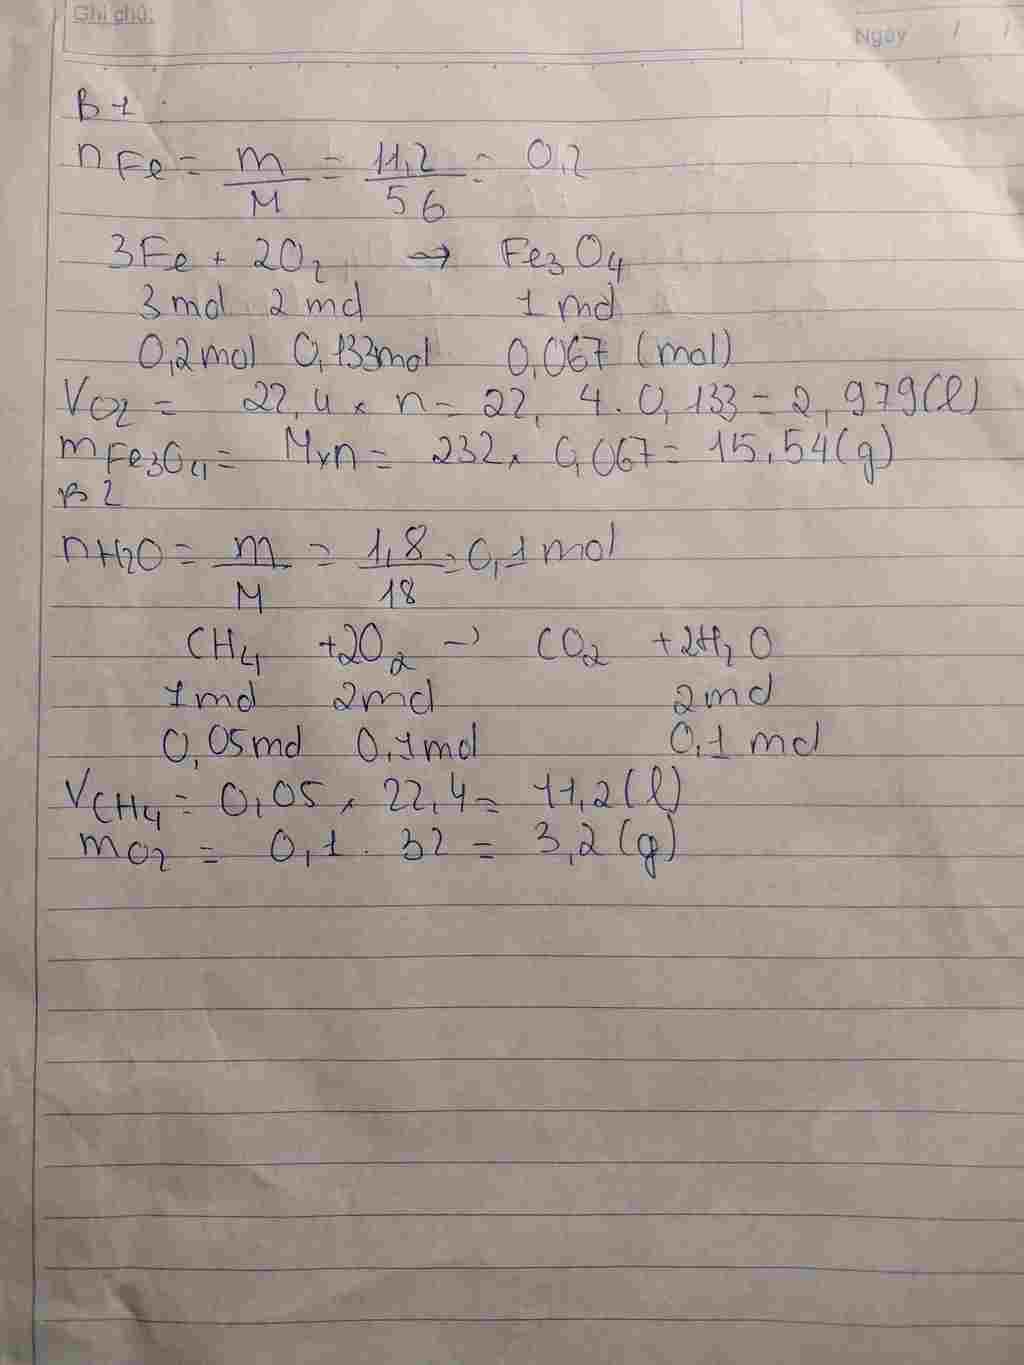 Ghi chú:
Ngày / /
B1:
nFe = m/M = 11,2/56 = 0,2
3Fe + 2O2 → Fe3O4
3mol 2mol 1mol
0,2mol 0,133mol 0,067 (mol)
VO2 = 22,4 x n = 22,4.0,133 = 2,979(l)
mFe3O4 = Mxn = 232x0,067 = 15,54(g)
B2
nH2O = m/M = 1,8/18 = 0,1mol
CH4 +2O2 → CO2 +2H2O
1mol 2mol 2mol
0,05mol 0,1mol 0,1mol
VCH4 = 0,05 x 22,4 = 11,2(l)
mO2 = 0,1.32 = 3,2(g)